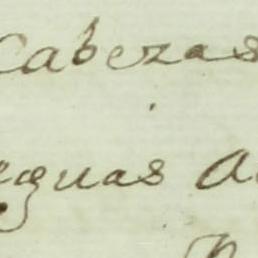 Cabezas
eguas a